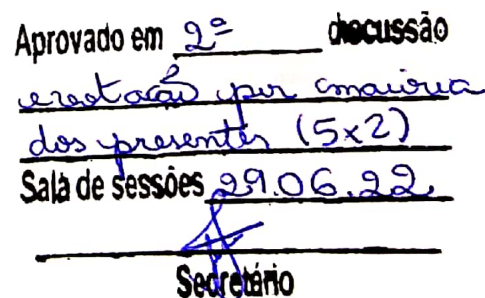 Aprovado em 2ª discussão
e votação por maioria
dos presentes (5x2)
Sala de sessões 29.06.22.
Secretário